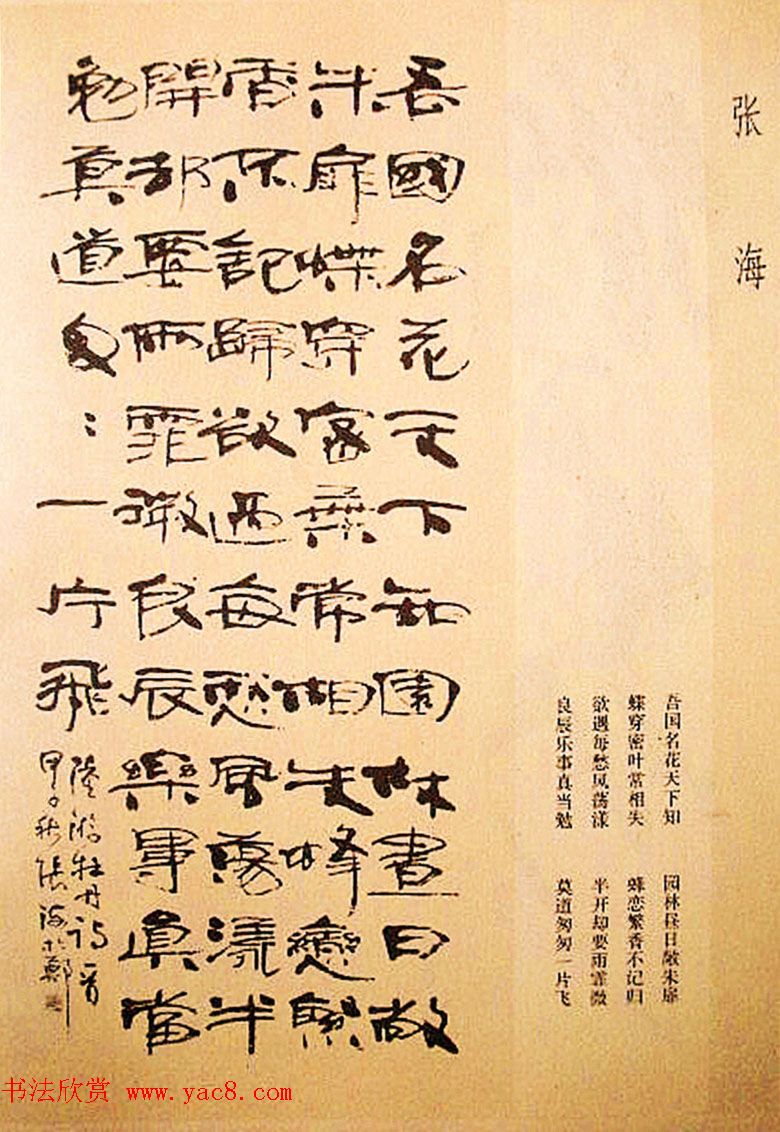 张海
吾国名花天下知 园林昼日敞朱扉
蝶穿密叶常相失 蜂恋繁香不记归
欲遇每愁风荡漾 半开却要雨霏微
良辰乐事真当勉 莫道匆匆一片飞
吾國名花天下知園林晝日敞
朱扉蝶穿密葉常相失蜂戀繁
香不記歸欲過每愁風蕩漾半
開却要雨霏微良辰樂事真當
勉莫道匆〻一片飛
陸游牡丹诗一首
甲子秋張海於鄭
书法欣赏 www.yac8.com